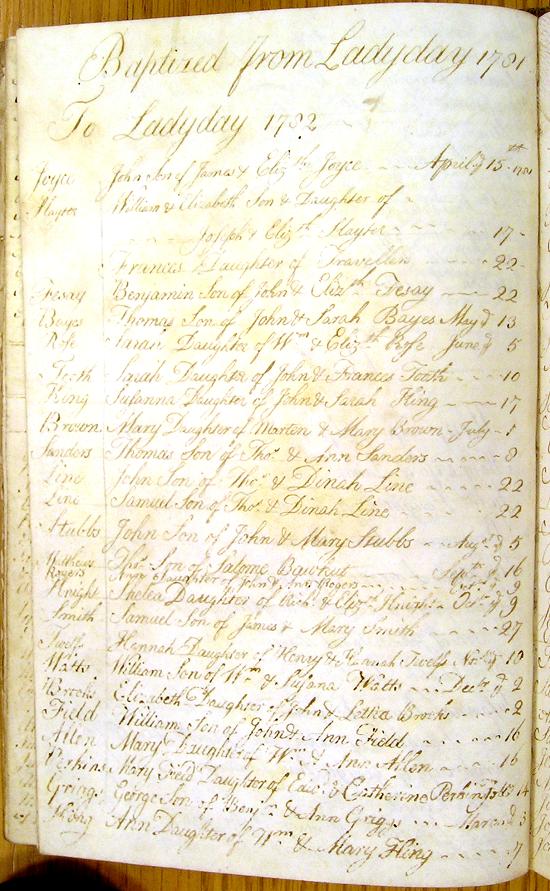 Baptized from Ladyday 1781
To Ladyday 1782
Joyce John Son of James & Eliz.th Joyce - - - April ye 15th 1781
Slayter William & Elizabeth Son & Daughter of
Joseph & Eliz.th Slayter - - 17 -
Frances Daughter of Traveller - - - 22 -
Tesay Benjamin Son of John & Eliz.th Tesay - - - 22
Bayes Thomas Son of John & Sarah Bayes May ye 13
Rose Sarah Daughter of Wm & Eliz.th Rose June ye 5
Tooth Sarah Daughter of John & Frances Tooth - - - 10
King Susanna Daughter of John & Sarah King - - - 17
Brown Mary Daughter of Marten & Mary Brown - July - 1
Sanders Thomas Son of Tho.s & Ann Sanders - - - 8
Line John Son of Tho.s & Dinah Line - - - 22
Line Samuel Son of Tho.s & Dinah Line - - - 22
Stubbs John Son of John & Mary Stubbs - - Aug.st ye 5
Mathews Tho.s Son of Salome - - - Sept.r ye 16
Rogers Ann Daughter of John & Ann Rogers - - - 9
Knight Daughter of Rich.d & Eliz.th Knight - Oct.r ye 9
Smith Samuel Son of James & Mary Smith - - - 27
Twelfs Hannah Daughter of Henry & Hannah Twelfs Nov.r ye 18
Watts William Son of Wm & Susana Watts - - Dec.r ye 2
Brooks Elizabeth Daughter of John & Letha Brooks - - - 2
Field William Son of John & Ann Field - - - 16
Allen Mary Daughter of Wm & Ann Allen - - - 16
Perkins Mary Field Daughter of & Catherine Perkins 14
Griggs George Son of Benj.n & Ann Griggs - - - March ye 3
King Ann Daughter of Wm & Mary King - - - 7